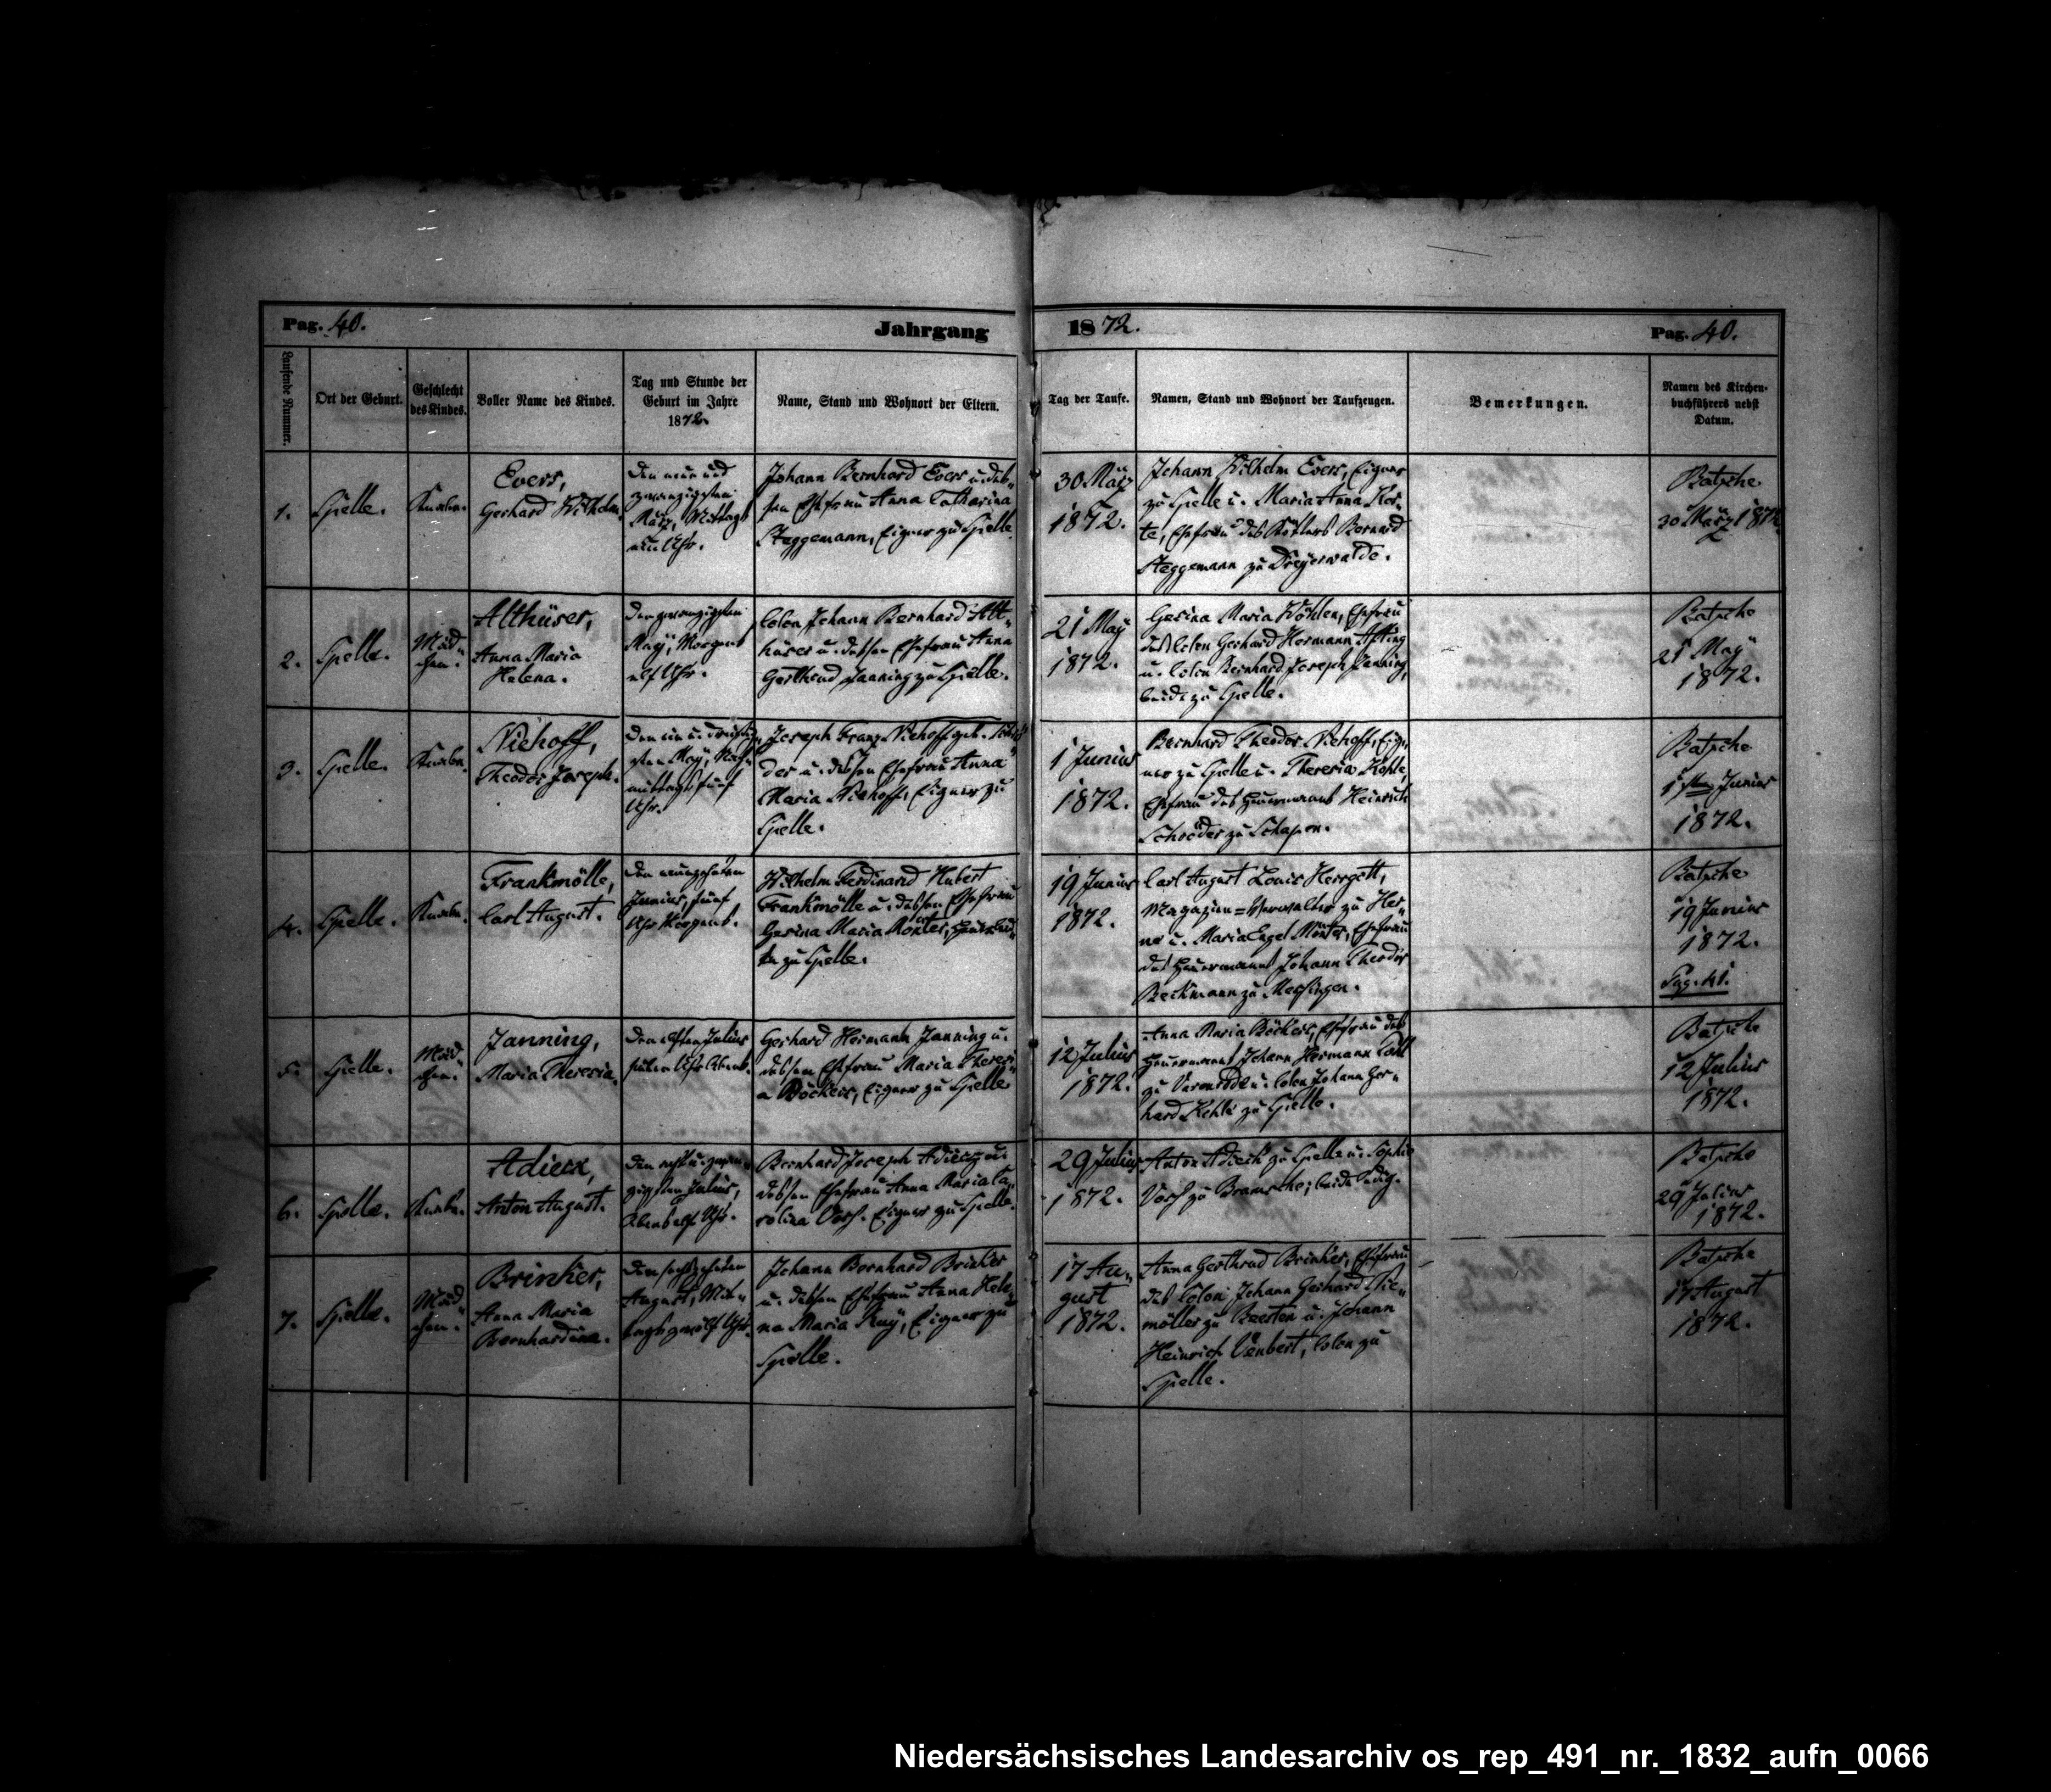 Pag. 40.
Jahrgang
1872.
Pag. 40.
Laufende Nummer.
Ort der Geburt.
Geschlecht
des Kindes.
Voller Name des Kindes.
Tag und Stunde der
Geburt im Jahre
1872.
Name, Stand und Wohnort der Eltern.
Tag der Taufe.
Namen, Stand und Wohnort der Taufzeugen.
Bemerkungen.
Namen des Kirchen-
buchführers nebst
Datum.
1.
Spelle.
Knaben.
Evers,
Gerhard Wilhelm.
Den neun und
zwanzigsten
März, Mittags
ein Uhr.
Johann Bernhard Evers u. des-
sen Ehefrau Anna Catharina
Steggemann, Eigner zu Spelle.
30 März
1872.
Johann Wilhelm Evers, Eigner
zu Spelle u. Maria Anna Kor-
te, Ehefrau des Kötters Bernard
Steggemann zu Dreyerwalde.
Batsche
30 März 1872
2.
Spelle.
Mäd-
chen.
Althüser,
Anna Maria
Helena.
Den zwanzigsten
May, Morgens
elf Uhr.
Colon Johann Bernhard Alt-
hüser u. dessen Ehefrau Anna
Gerthrud Janning zu Spelle.
21 May
1872.
Gesina Maria Wöhlen, Ehefrau
des Colon Gerhard Hermann
u. Colon Bernhard Joseph Janning,
beide zu Spelle.
Batsche
21 May
1872.
3.
Spelle.
Knaben.
Niehoff,
Theodor Joseph.
Den ein u. dreißig-
sten May, Nach-
mittags fünf
Uhr.
Joseph Franz Niehoff gb. Schrö-
der u. dessen Ehefrau Anna
Maria Niehoff, Eigner zu
Spelle.
1 Junius
1872.
Bernhard Theodor Niehoff, Eig-
ner zu Spelle u. Theresia Kohle,
Ehefrau des Heuermanns Heinrich
Schroeder zu Schapen.
Batsche
1 sten Junius
1872.
4.
Spelle.
Knaben.
Frankmölle,
Carl August.
Den neunzehnten
Junius, fünf
Uhr Morgens.
Wilhelm Ferdinand Hubert
Frankmölle u. dessen Ehefrau
Gesina Maria Mönter, Heuerleu-
te zu Spelle.
19 Junius
1872.
Carl August Louis Herrgott,
Magazin=Verwalter zu Her-
ne u. Maria Engel Mönter, Ehefrau
des Heuermanns Johann Theodor
Beckmann zu Messingen.
Batsche
19 Junius
1872.
Pag. 41.
5.
Spelle.
Mäd-
chen.
Janning,
Maria Theresia.
Den elften Julius
sieben Uhr Abends.
Gerhard Hermann Janning u.
dessen Ehefrau Maria Theresi-
a Böckers, Eigner zu Spelle
12 Julius
1872.
Anna Maria Böckers, Ehefrau des
Heuermanns Johann Hermann
zu Varenrode u. Colon Johann Ger-
hard Kohle zu Spelle.
Batsche
12 Julius
1872.
6.
Spelle.
Knaben.
Adieck,
Anton August.
Den acht u. zwan-
zigsten Julius,
Abends elf Uhr.
Bernhard Joseph Adieck u.
dessen Ehefrau Anna Maria Ca-
rolina Voß. Eigner zu Spelle.
29 Julius
1872.
Anton Adieck zu Spelle u. Sophie
Voß zu Bramsche; beide ledig.
Batsche
29 Julius
1872.
7.
Spelle.
Mäd-
chen.
Brinker,
Anna Maria
Bernhardina.
Den sechszehnten
August, Mit-
tags zwölf Uhr.
Johann Bernhard Brinker
u. dessen Ehefrau Anna Hele-
na Maria Ruy, Eigner zu
Spelle.
17 Au-
gust
1872.
Anna Gerthrud Brinker, Ehefrau
des Coloni Johann Gerhard Nie-
möller zu Beesten u. Johann
Heinrich Venbert, Colon zu
Spelle.
Batsche
17 August
1872.
Niedersächsisches Landesarchiv os_rep_491_nr._1832_aufn_0066